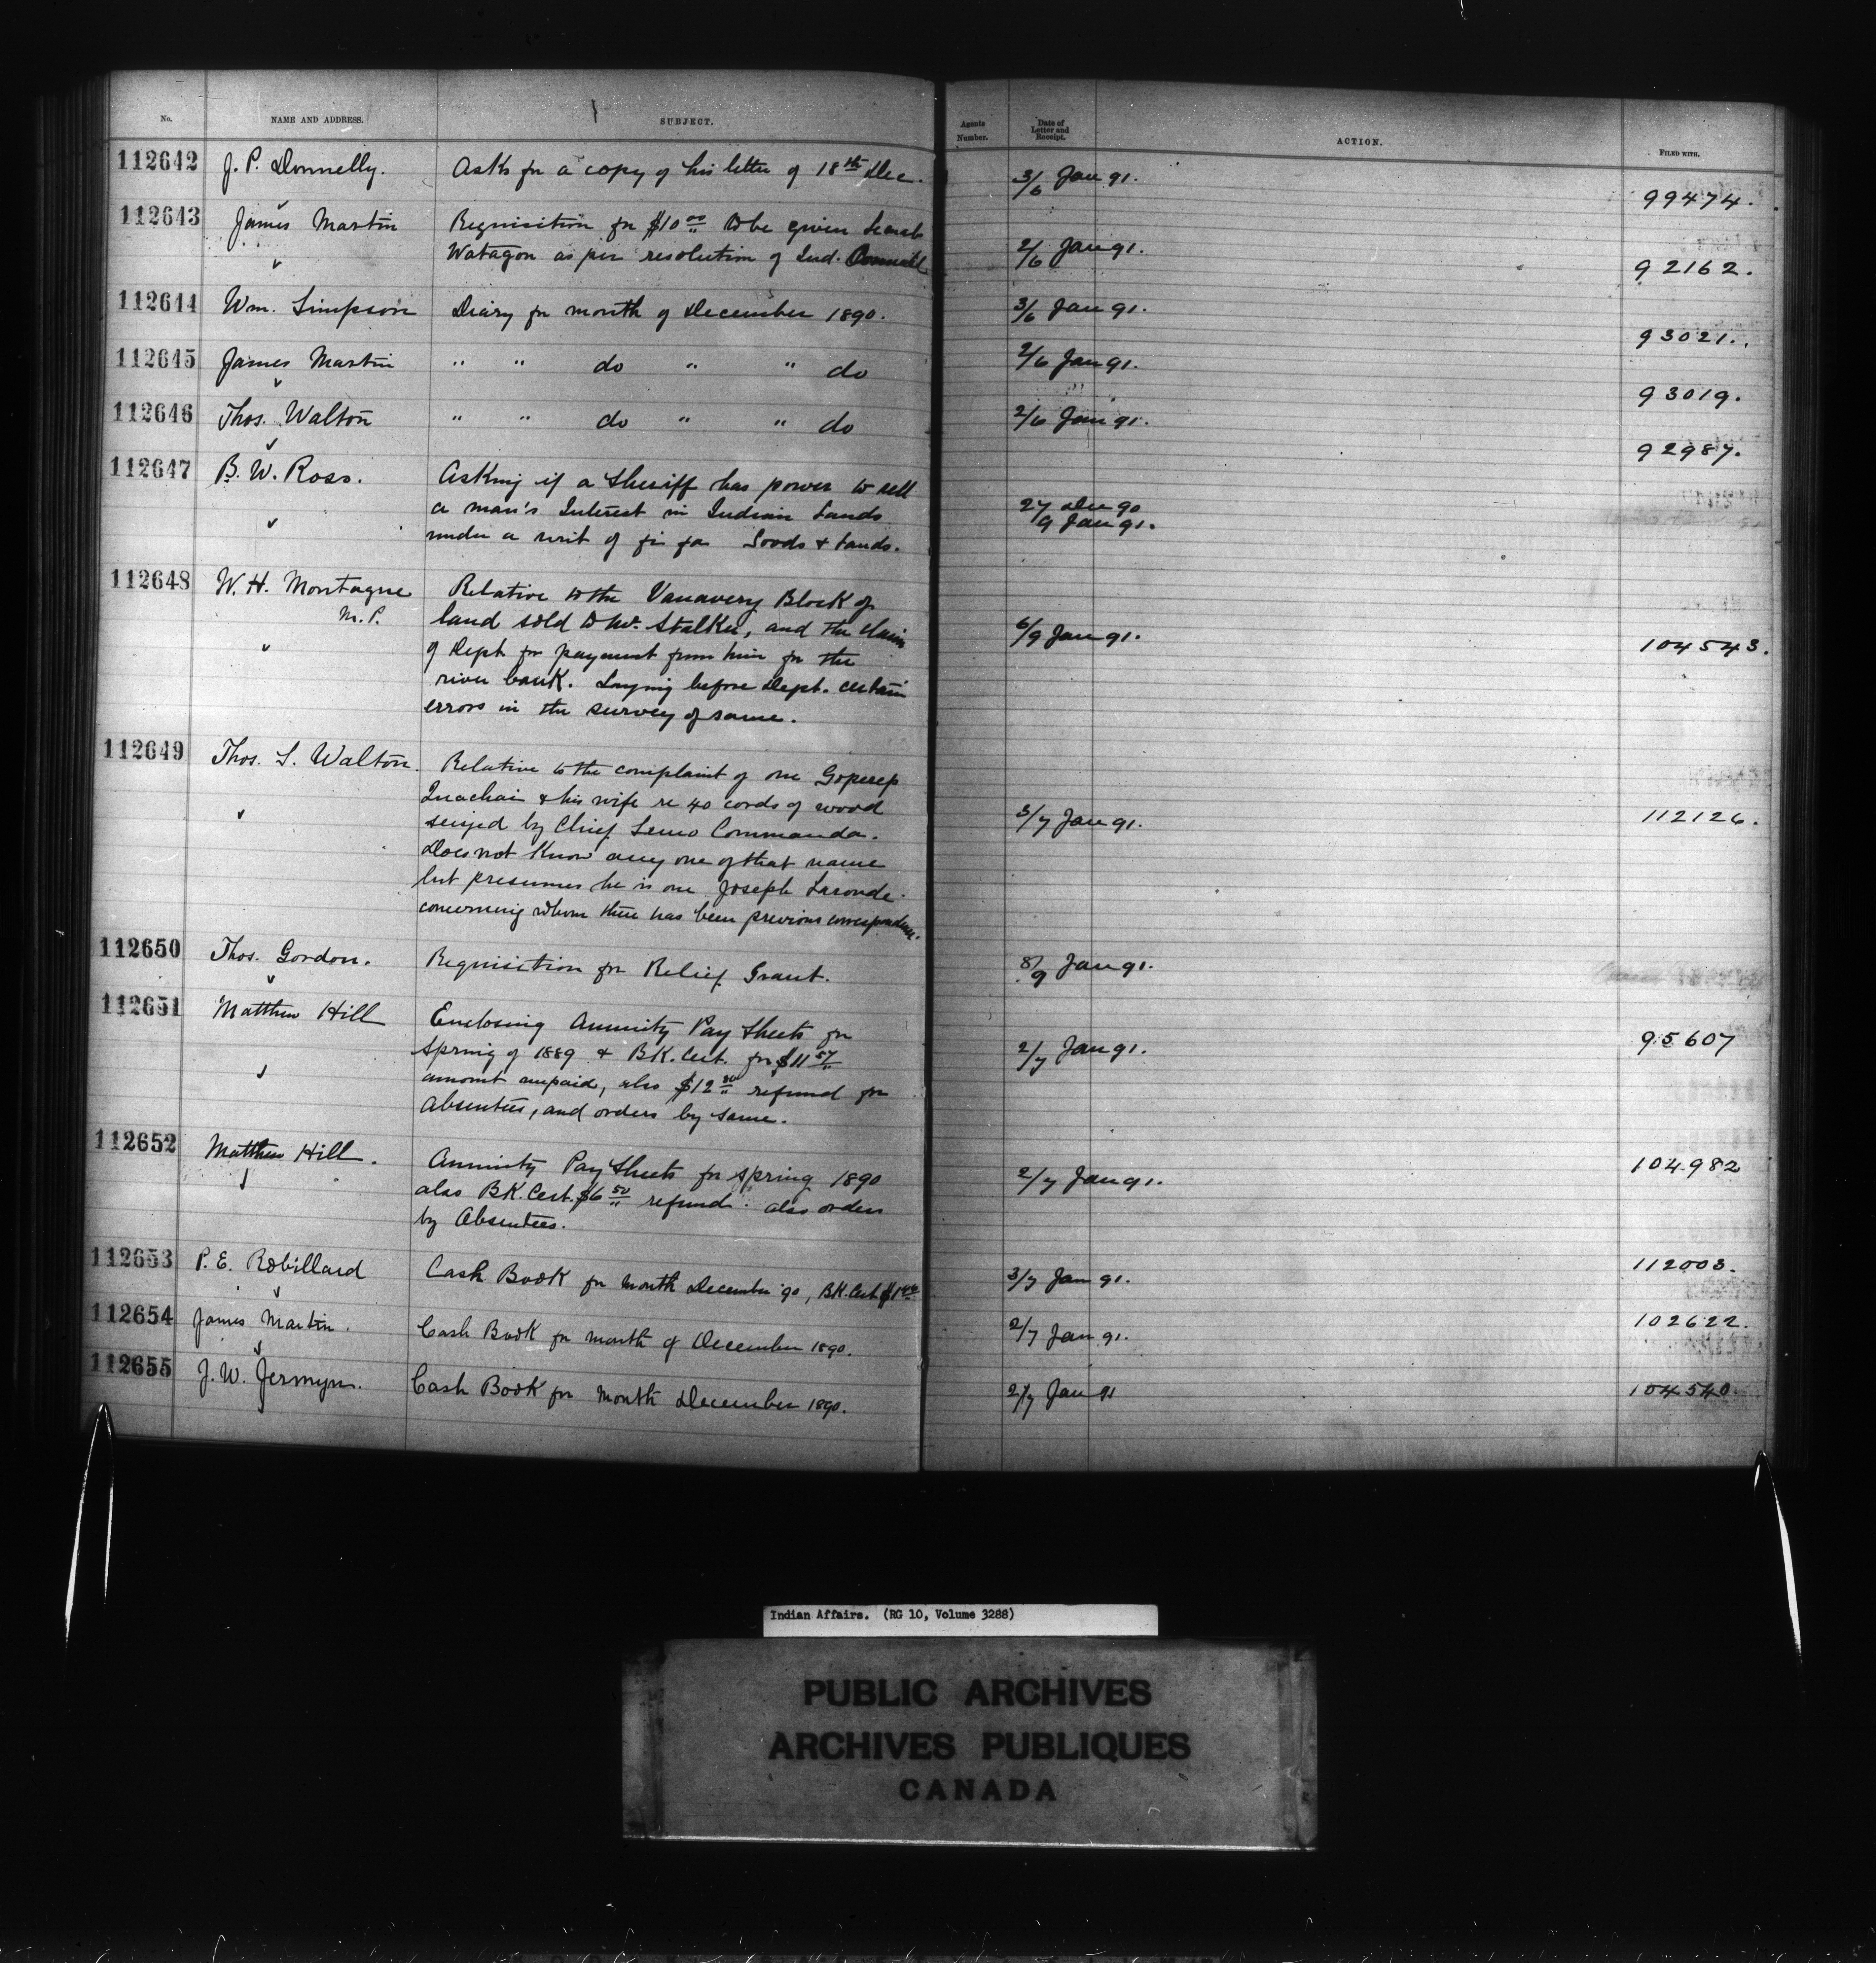 No. NAME AND ADDRESS. SUBJECT. Agents Number. Date of Letter and Receipt. ACTION. FILED WITH.
112642 J. P. Donnelly. Asks for a copy of his letter of 18th Dec. 3/6 Jan 91. 99474.
112643 James Martin Requisition for $10 00 to be given Sarah
Watagon as per resolution of Ind. Council 2/6 Jan 91. 92162.
112644 Wm. Simpson Diary for month of December 1890. 3/6 Jan 91. 93021.
112645 James Martin " " do " " do 2/6 Jan 91. 93019.
112646 Thos. Walton " " do " " do 2/6 Jan 91. 92987.
112647 B. W. Ross. Asking if a Sheriff has power to sell
a man's Interest in Indian Lands 27 Dec 90
under a writ of fi fa Goods & Lands. /9 Jan 91.
112648 W. H. Montague Relative to the Vanavery Block of
M.P. land sold to Mr. Stalker, and the claim 6/9 Jan 91. 104543.
of Dept for payment from him for the
river bank. Laying before Dept. certain
errors in the survey of same.
112649 Thos. S. Walton. Relative to the complaint of one
& his wife re 40 cords of wood
seized by Chief Semo Commanda. 3/7 Jan 91. 112126.
Does not know any one of that name
but presumes he is one Joseph Laronde
concerning whom there has been previous correspondence.
112650 Thos. Gordon. Requisition for Relief Grant. 8/9 Jan 91.
112651 Matthew Hill Enclosing Annuity Pay Sheets for
Spring of 1889 & BK. Cert. for $11 57 2/7 Jan 91. 95607
amount unpaid, also $12 refund for
Absentees, and orders by same.
112652 Matthew Hill. Annuity Pay Sheets for Spring 1890 2/7 Jan 91. 104982
also BK. Cert. $6 50 refund. also orders
by Absentees.
112653 P. E. Robillard Cash Book for month December 90, BK. Cert. 3/7 Jan 91. 112003.
112654 James Martin. Cash Book for month of December 1890. 2/7 Jan 91. 102622.
112655 J. W. Jermyn. Cash Book for month December 1890. 2/7 Jan 91 104540.
Indian Affairs. (RG 10, Volume 3288)
PUBLIC ARCHIVES
ARCHIVES PUBLIQUES
CANADA